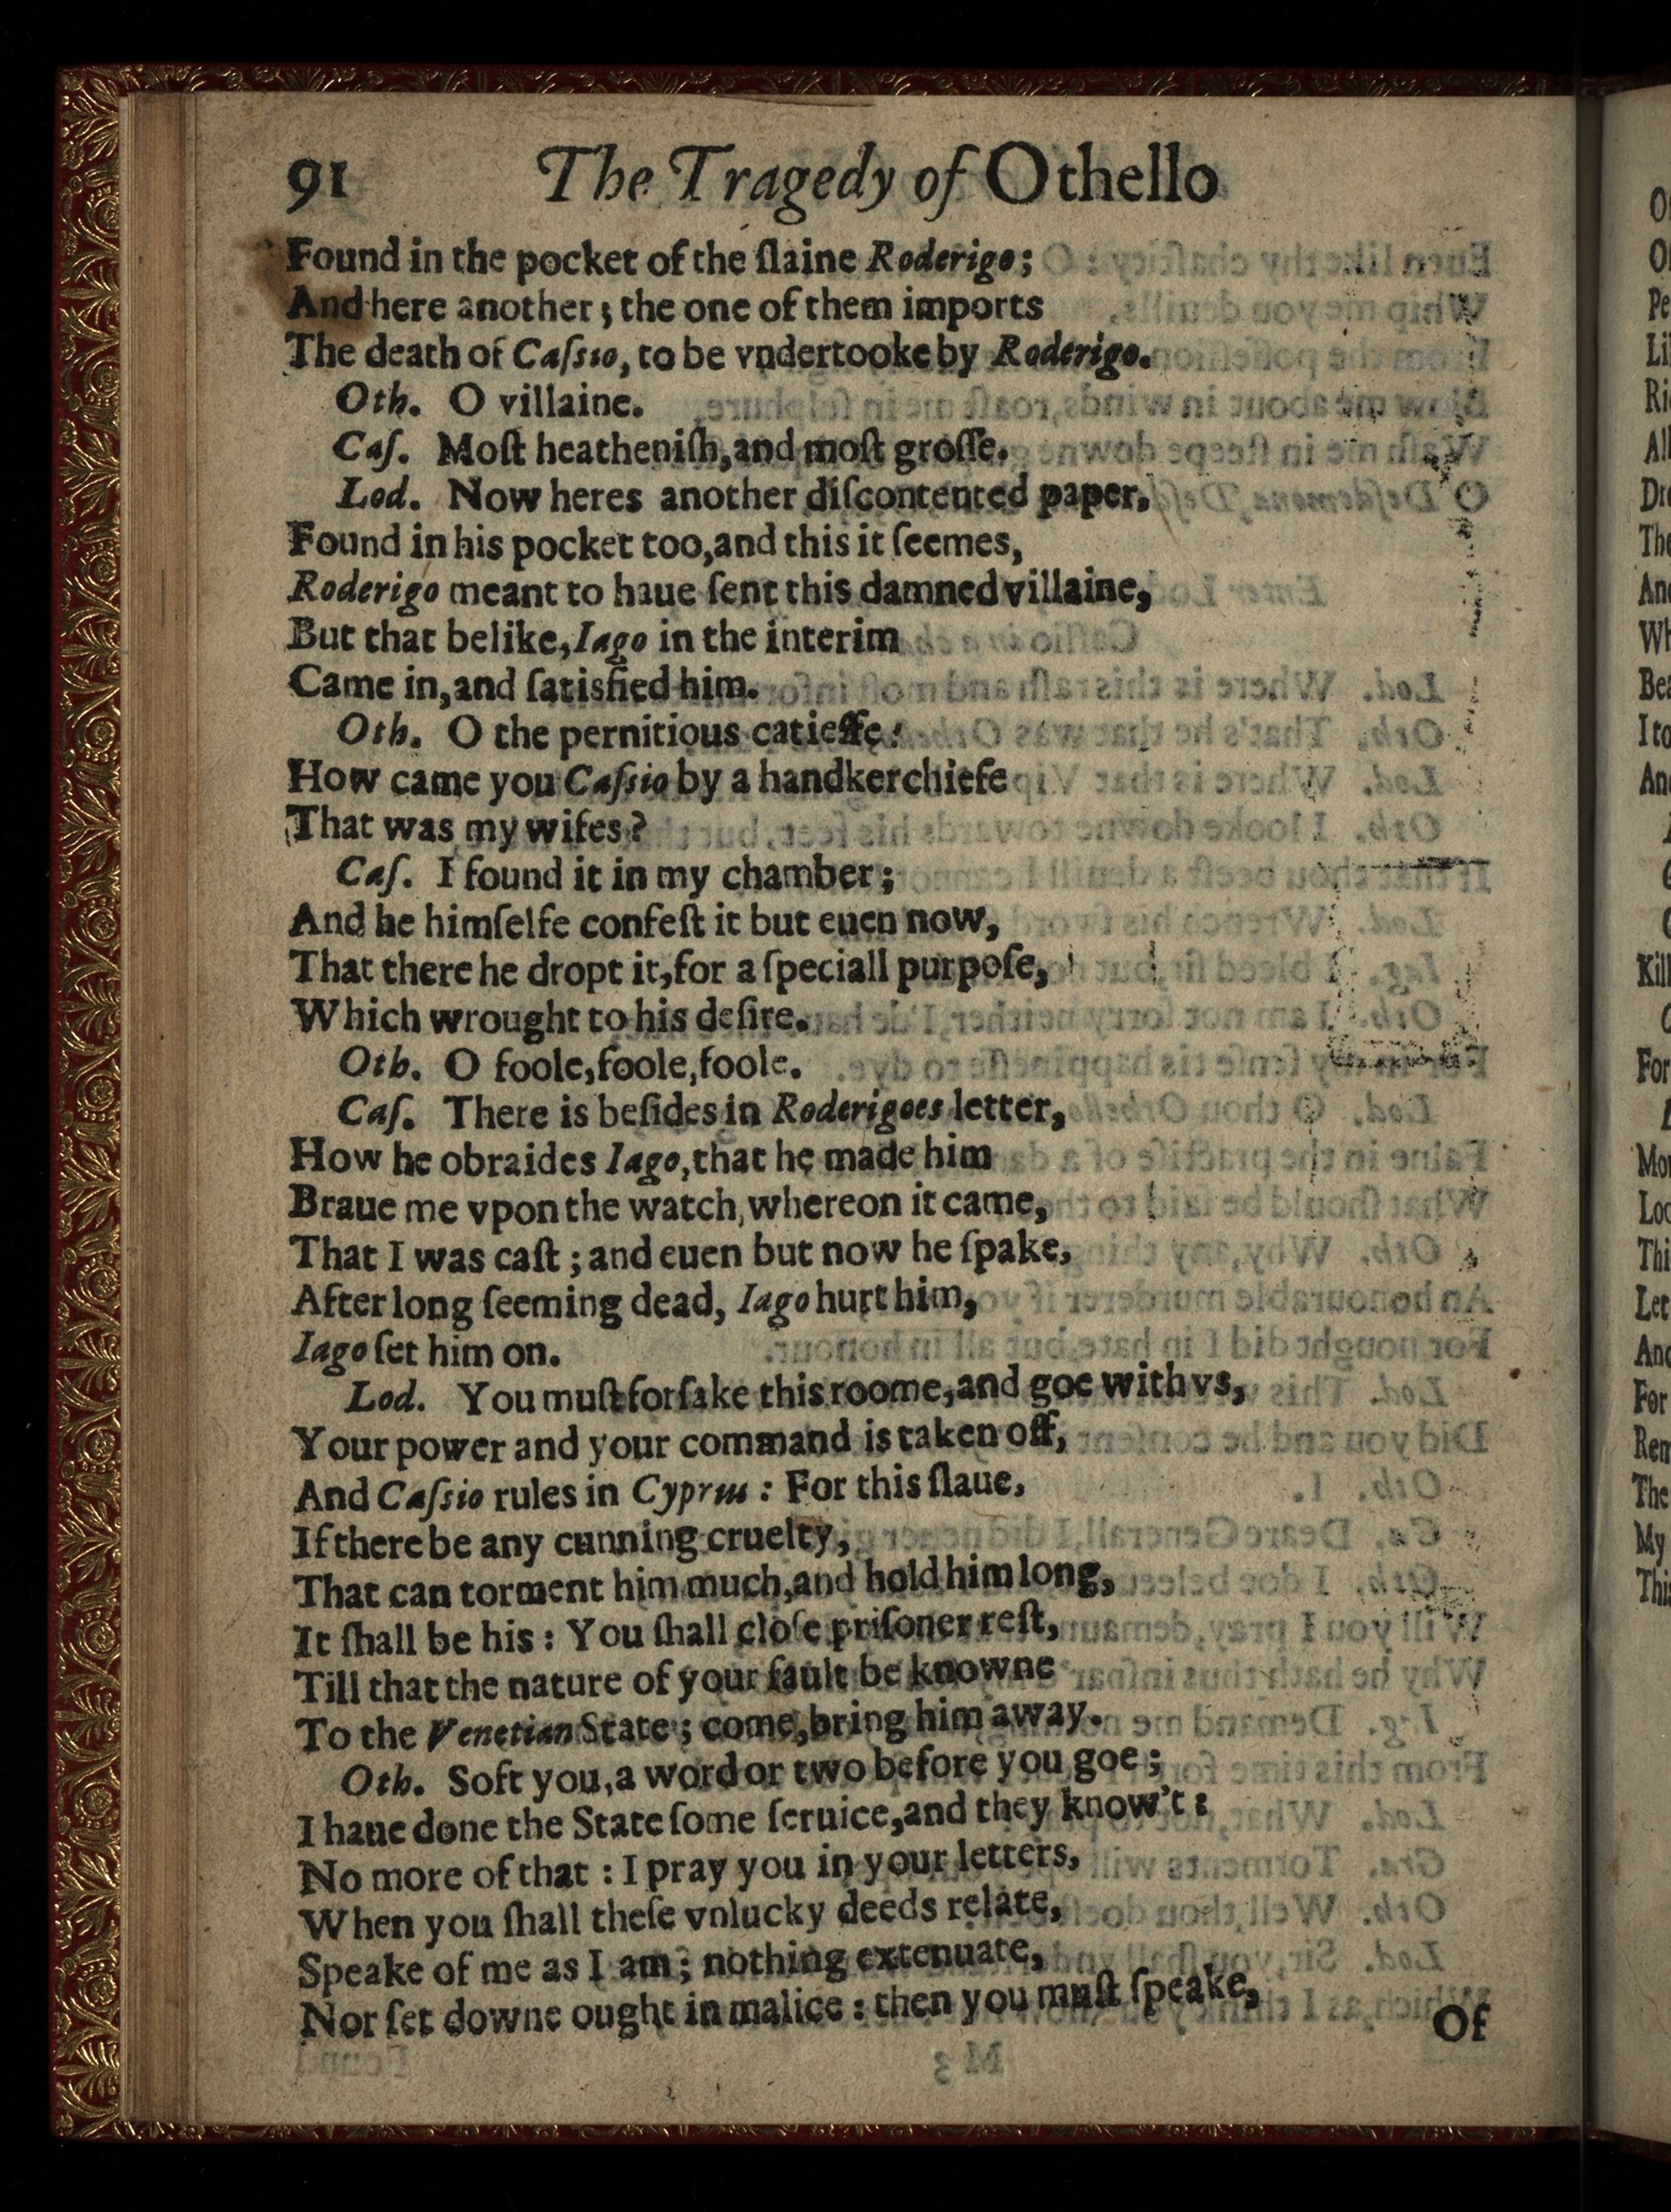 91 The Tragedy of Othello
Found in the pocket of the ſlaine Roderigo;
And here another; the one of them imports
The death of Caſsio, to be vndertooke by Roderigo.
Oth. O villaine.
Caſ. Moſt heatheniſh, and moſt groſſe.
Lod. Now heres another diſcontented paper,
Found in his pocket too, and this it ſeemes,
Roderigo meant to haue ſent this damned villaine,
But that belike, Iago in the interim
Came in, and ſatisfied him.
Oth. O the pernitious catieffe:
How came you Caſsio by a handkerchiefe
That was my wifes?
Caſ. I found it in my chamber;
And he himſelfe confeſt it but euen now,
That there he dropt it, for a ſpeciall purpoſe,
Which wrought to his deſire.
Oth. O foole, foole, foole.
Caſ. There is beſides in Roderigoes letter,
How he obraides Iago, that he made him
Braue me vpon the watch, whereon it came,
That I was caſt; and euen but now he ſpake,
After long ſeeming dead, Iago hurt him,
Iago ſet him on.
Lod. You muſt forſake this roome, and goe with vs,
Your power and your command is taken off,
And Caſsio rules in Cyprus: For this ſlaue,
If there be any cunning cruelty,
That can torment him much, and hold him long,
It ſhall be his: You ſhall cloſe priſoner reſt,
Till that the nature of your fault be knowne
To the Venetian State; come, bring him away.
Oth. Soft you, a word or two before you goe;
I haue done the State ſome ſeruice, and they know't:
No more of that: I pray you in your letters,
When you ſhall theſe vnlucky deeds relate,
Speake of me as I am; nothing extenuate,
Nor ſet downe ought in malice: then you muſt ſpeake,
Of